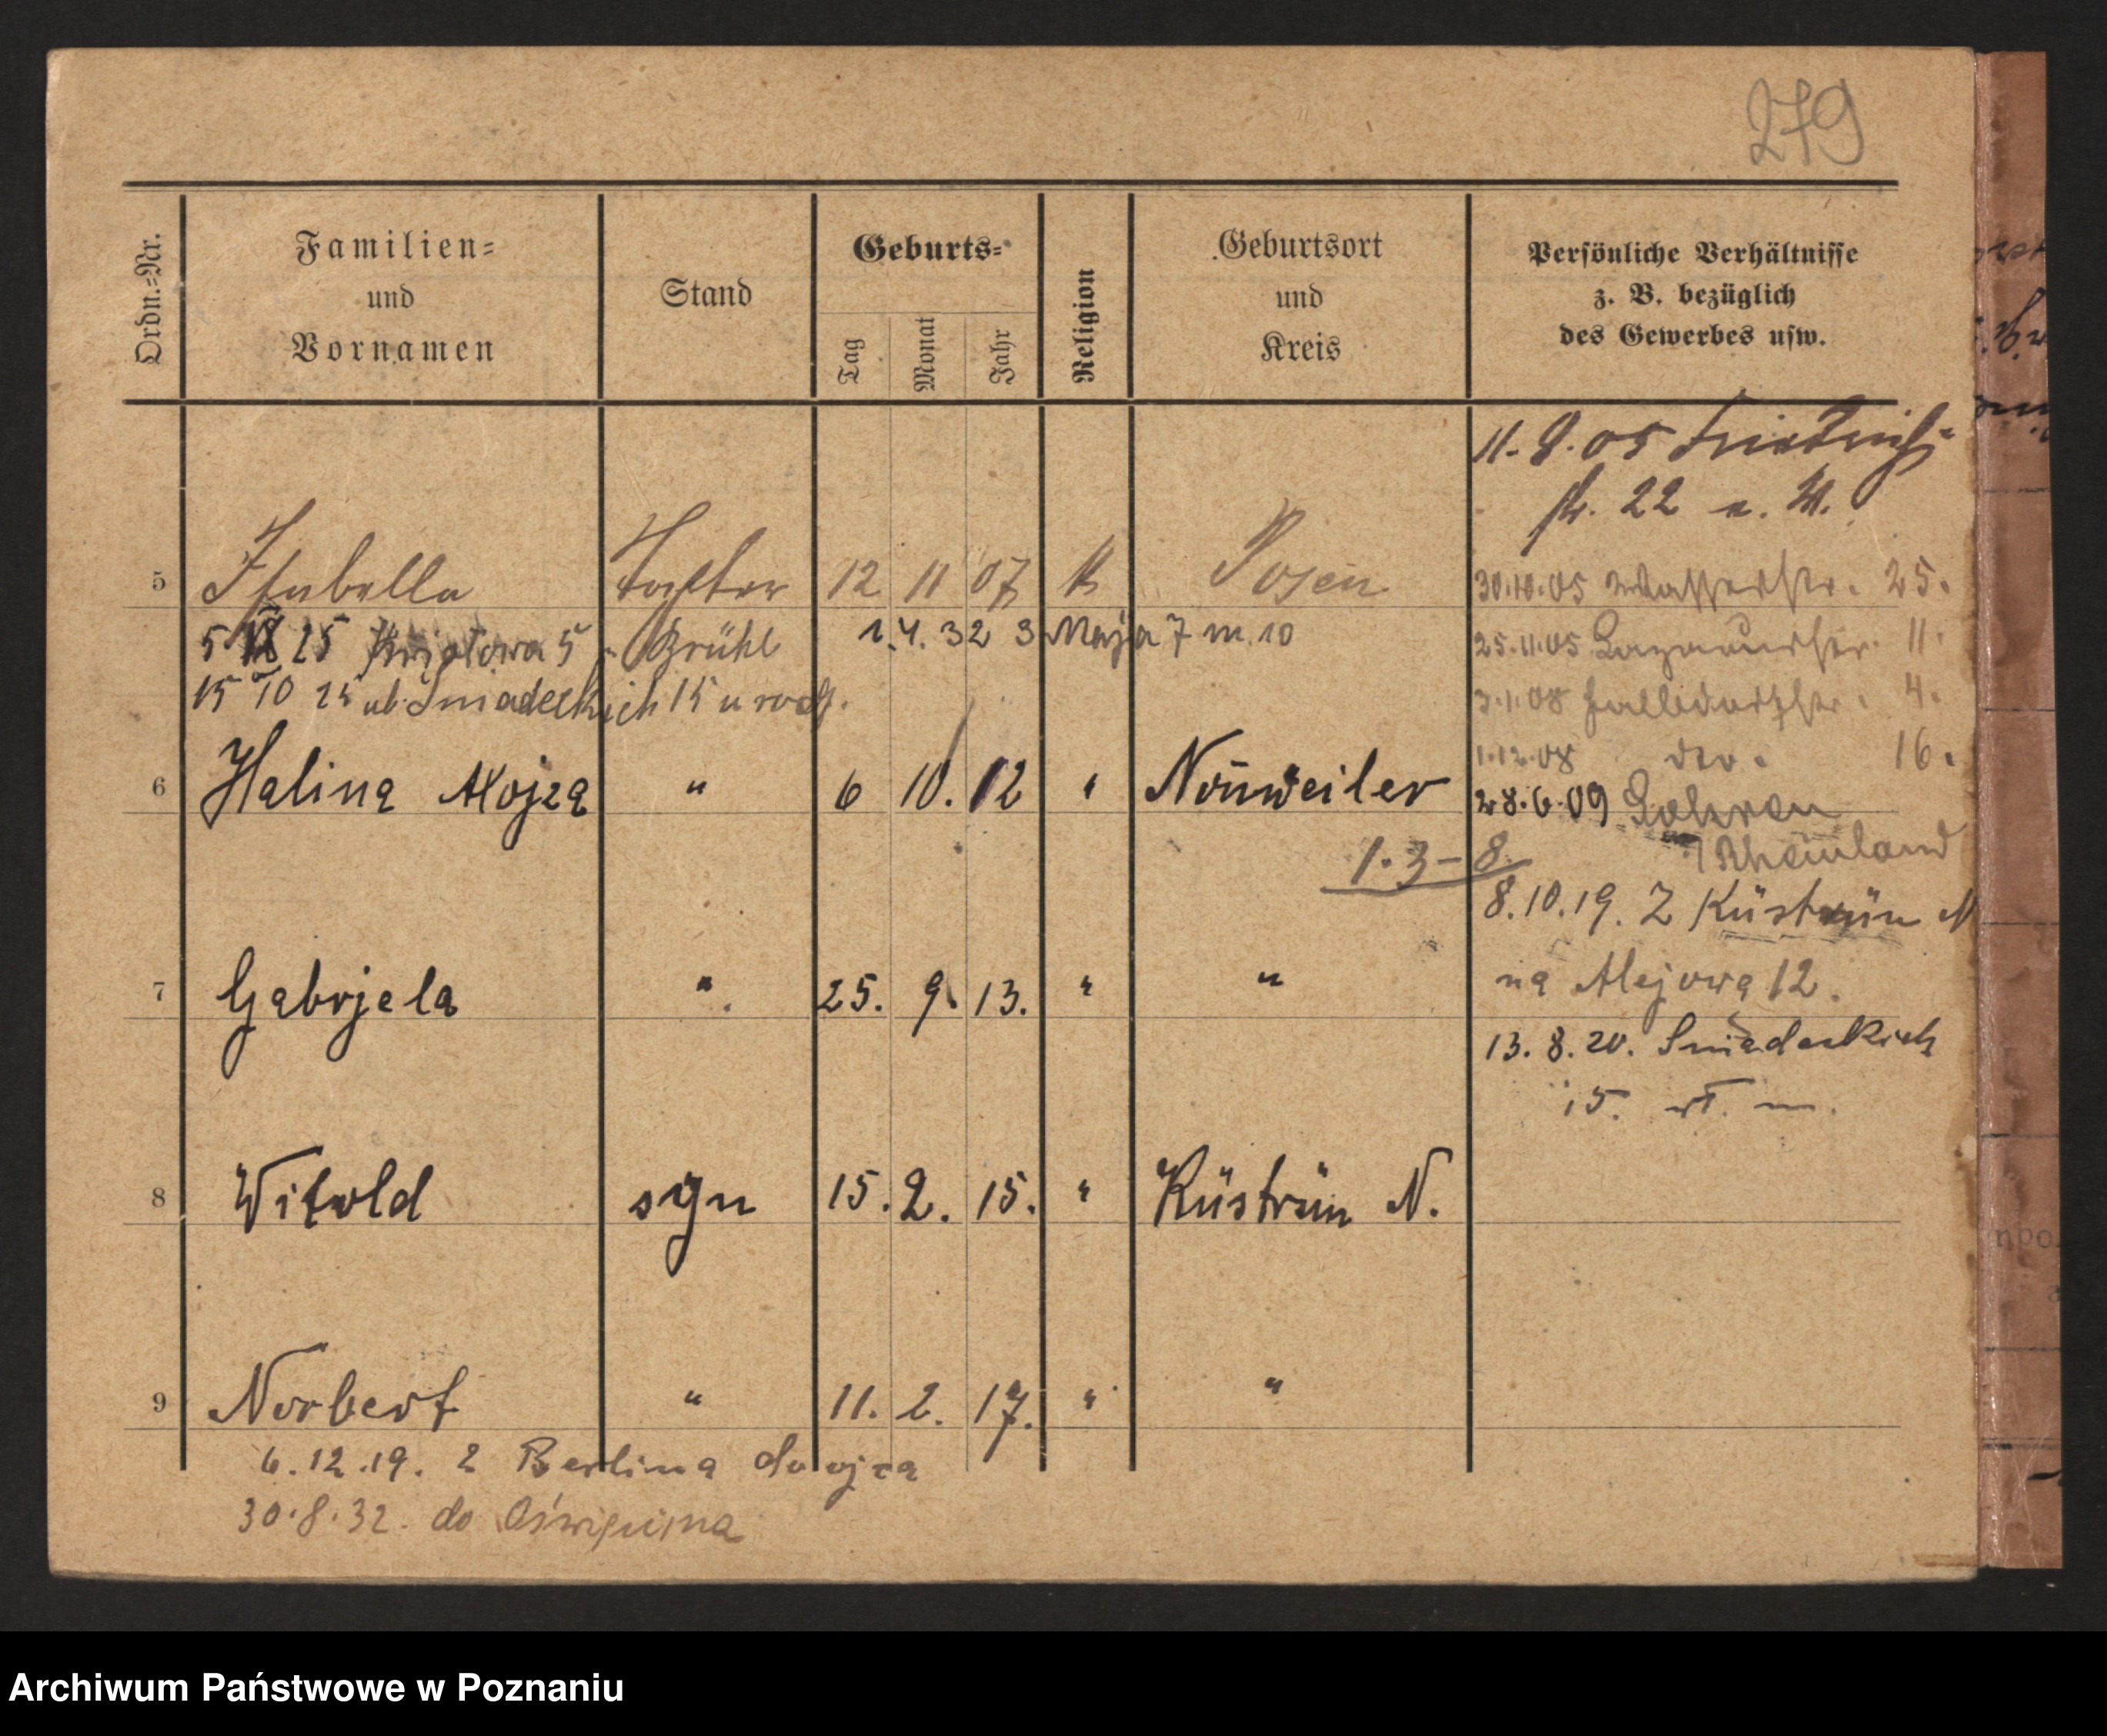 279
Ordn.-Nr.
Familien=
und
Vornamen
Stand
Geburts=
Tag
Monat
Jahr
Religion
Geburtsort
und
Kreis
Persönliche Verhältnisse
z. B. bezüglich
des Gewerbes usw.
11. 9. 05 Friedrich-
str. 22 a. W.
5 Isabella Tochter 12 11 07 K Posen
30.10.05 Wasserstr. 25.
5 25 5 Brühl 1.4.32 3 Maja 7 m. 10
25.11.05 11.
15 10 25 ul. Śniadeckich 15 u
3.1.08 4.
1.12.08 dto. 16.
6 Halina Alojza " 6 10. 12 " Nonweiler
28.6.09
Rheinland
1.3-8
8.10.19. Z Küstrin N
na Alejowa 12.
7 Gabrjela " 25. 9. 13. " "
13. 8. 20. Sniadeckich
15. m.
8 Witold syn 15. 2. 15. " Küstrin N.
9 Norbert " 11. 2. 17. " "
6.12.19. z Berlina do ojca
30.8.32. do Oświęcima
Archiwum Państwowe w Poznaniu